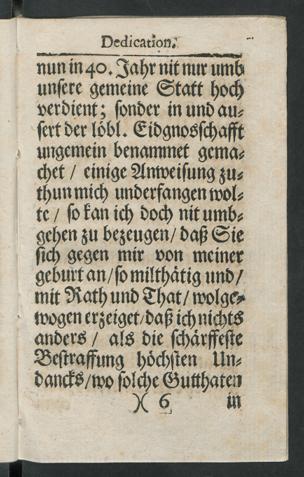 Dedication.
nun in 40. Jahr nit nur umb
unsere gemeine Statt hoch
verdient; sonder in und au-
sert der löbl. Eidgnosschafft
ungemein benammet gema-
chet / einige Anweisung zu-
thun mich underfangen wol-
te / so kan ich doch nit umb-
gehen zu bezeugen / daß Sie
sich gegen mir von meiner
geburt an / so milthätig und /
mit Rath und That / wolge-
wogen erzeiget / daß ich nichts
anders / als die schärffeste
Bestraffung höchsten Un-
dancks / wo solche Gutthaten
)( 6 in